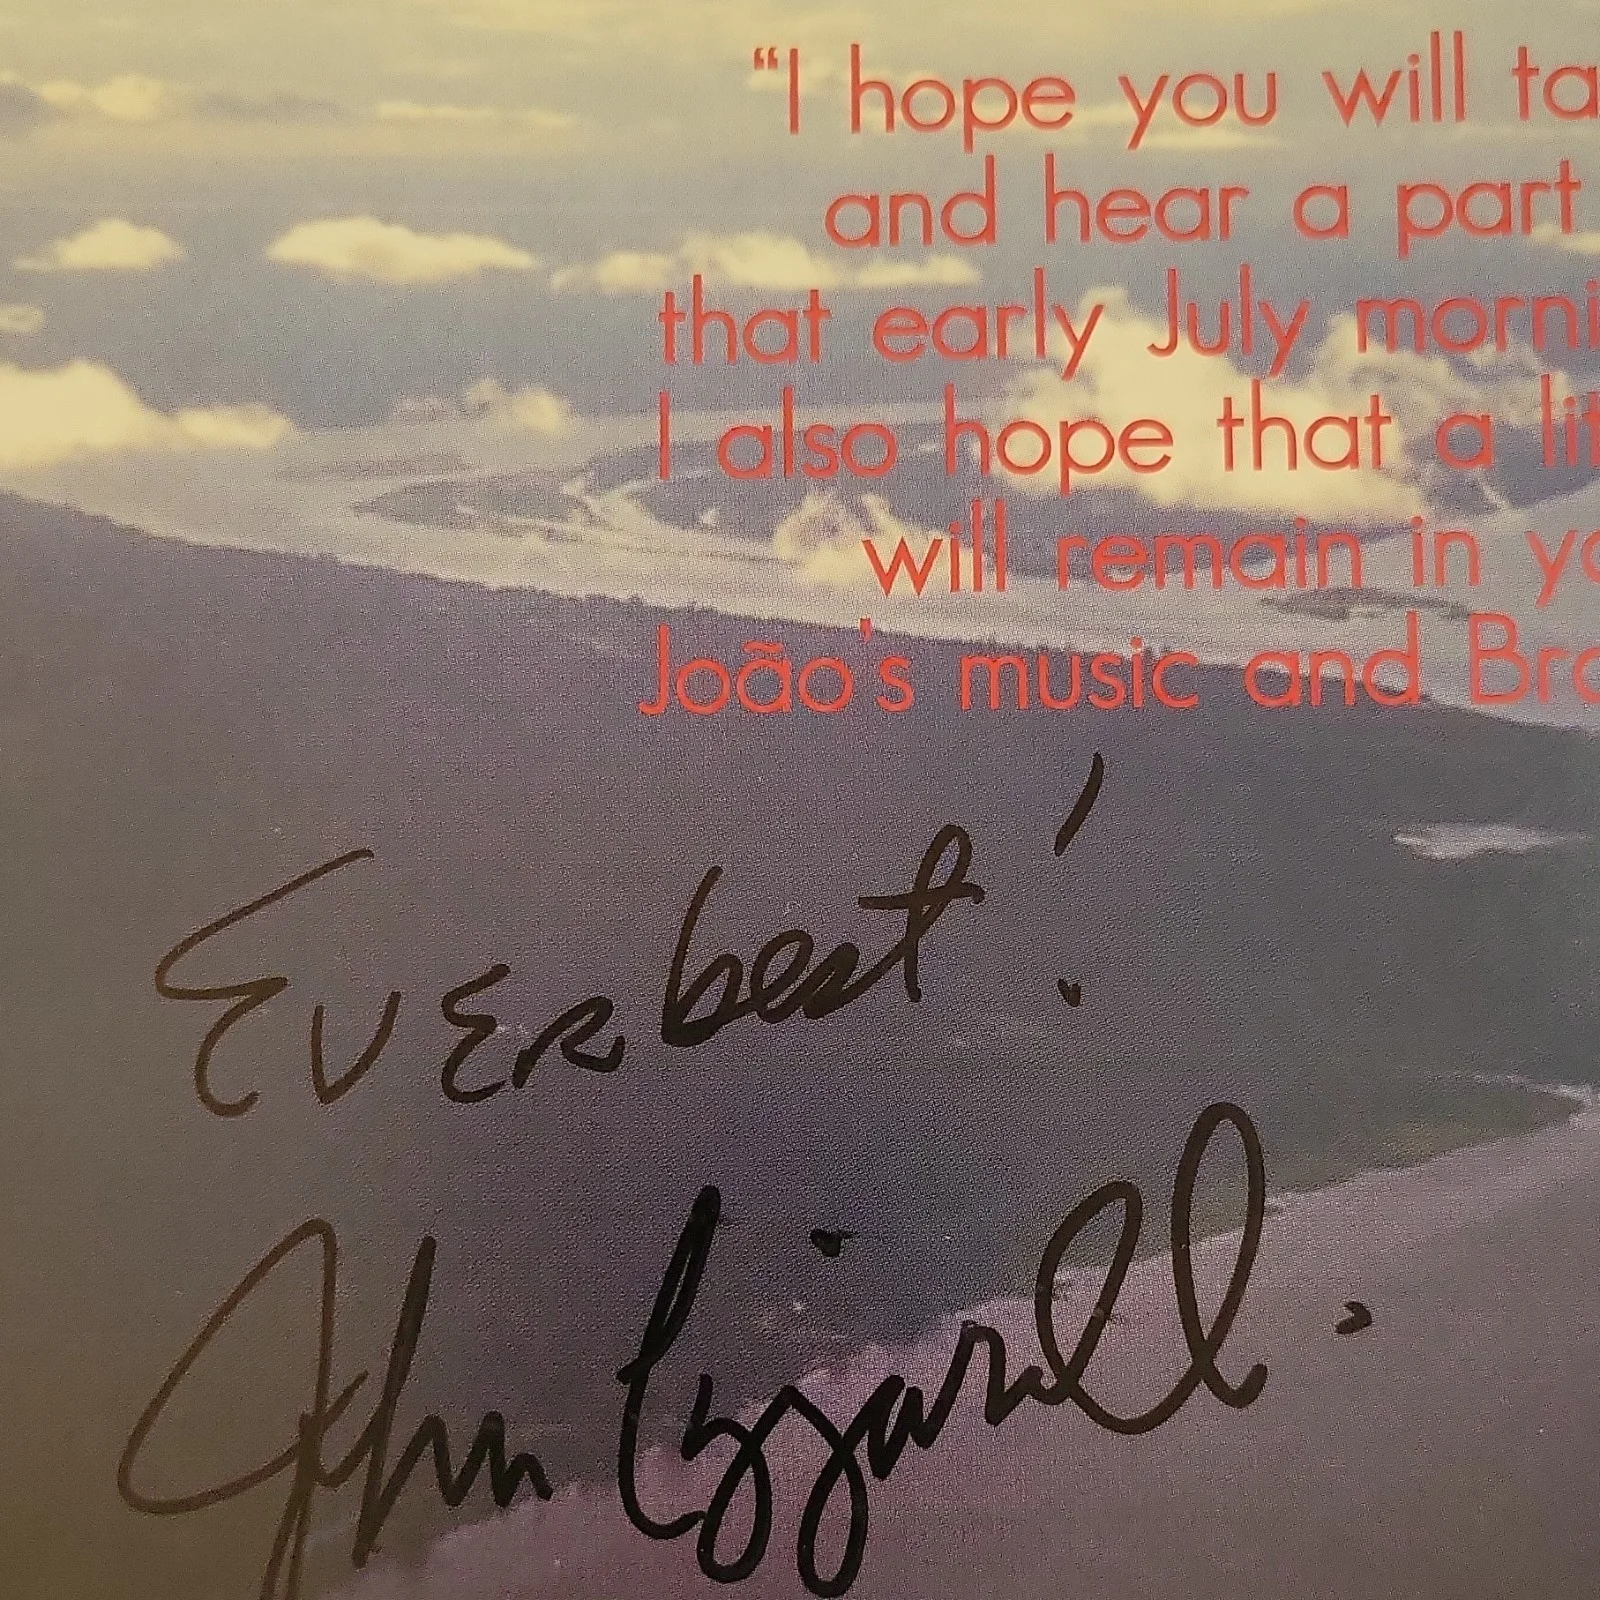 “I hope you will ta
and hear a part
that early July morni
I also hope that a lit
will remain in yo
João's music and Bra
Ever best!
John Lizzarell.